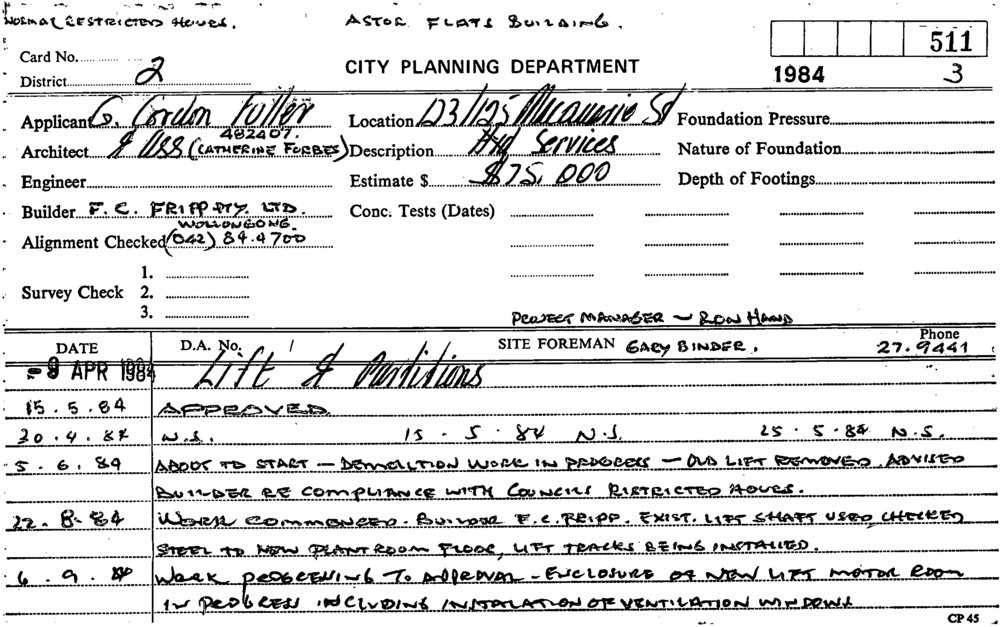 NORMAL RESTRICTED HOURS. ASTOR FLATS BUILDING.
511
Card No.
CITY PLANNING DEPARTMENT
1984 3
District 2
Applicant G. Gordon Fuller Location 123/125 Macquarie St Foundation Pressure
482407.
Architect & Ass (CATHERINE FORBES) Description Hyd Services Nature of Foundation
Engineer Estimate $ $75,000 Depth of Footings
Builder F. C. FRIPP PTY. LTD. Conc. Tests (Dates)
WOLLONGONG.
Alignment Checked (042) 84.4700
1.
Survey Check 2.
3.
PROJECT MANAGER — RON HAND
DATE D.A. No. / SITE FOREMAN GARY BINDER. Phone 27.9441
-9 APR 1984 Lift & Partitions
15.5.84 APPROVED
30.4.84 N.S. 15-5-84 N.S. 25-5-84 N.S.
5.6.84 ABOUT TO START — DEMOLITION WORK IN PROGRESS — OLD LIFT REMOVED. ADVISED
BUILDER RE COMPLIANCE WITH COUNCILS RISTRICTED HOURS.
22-8-84 WORK COMMENCED. BUILDER F.C. FRIPP. EXIST. LIFT SHAFT USED, CHECKED
STEEL TO NEW PLANT ROOM FLOOR, LIFT TRACKS BEING INSTALLED.
6.9.84 WORK PROGRESSING TO APPROVAL - ENCLOSURE OF NEW LIFT MOTOR ROOM
IN PROGRESS INCLUDING INSTALATION OF VENTILATION WINDOWS
CP 45